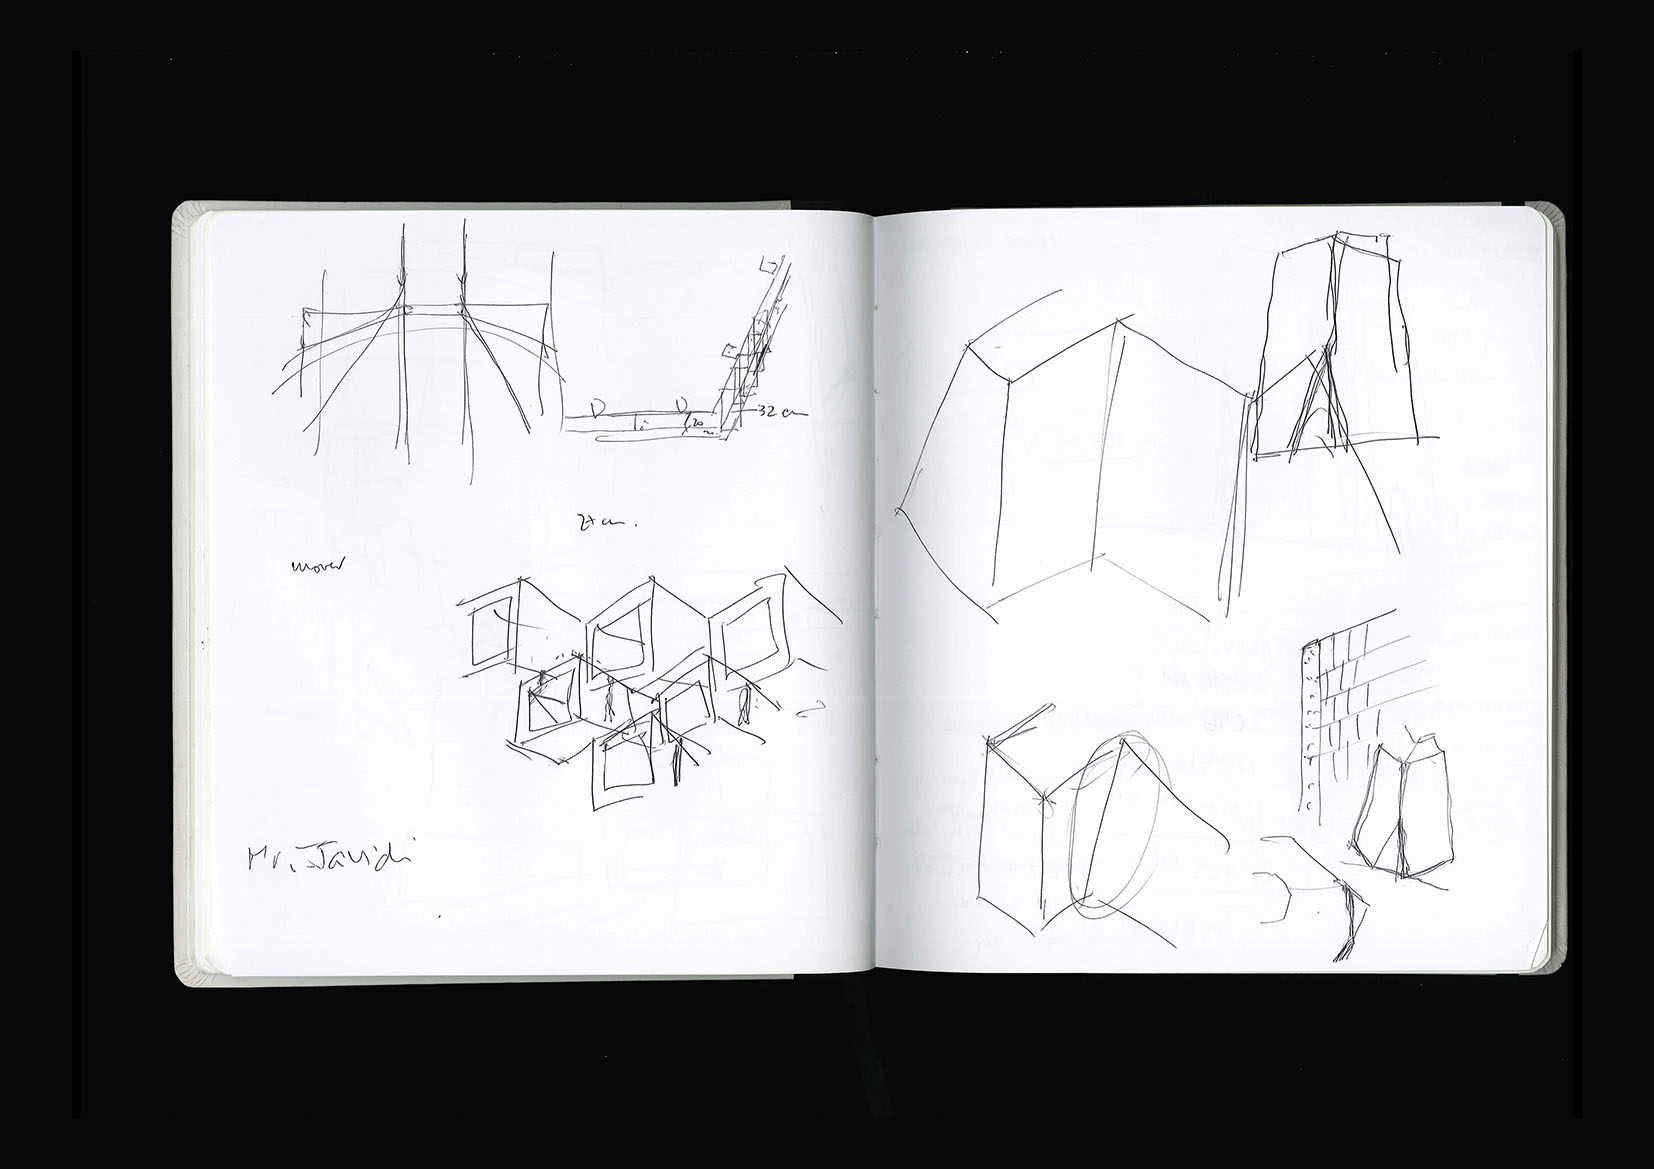 32 cm
20
27 cm.
mover
Mr. Javidi